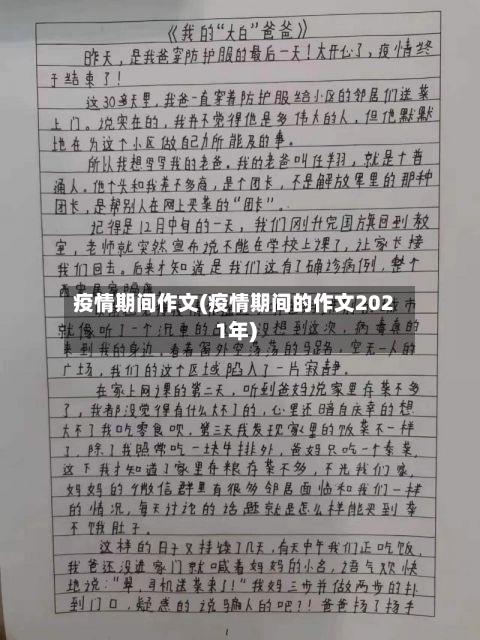 《我的“大白”爸爸》
昨天，是我爸穿防护服的最后一天！太开心了，疫情终
于结束了！
这30多天里，我爸一直穿着防护服给小区的邻居们送菜
上门。说实在的，我并不觉得他是多伟大的人，但他默默
地在为这个小区做自己力所能及的事。
所以我想写写我的老爸。我的老爸叫任翔，就是个普
通人。他个头和我差不多高，是个团长，不是解放军里的那种
团长，是帮别人在网上买菜的“团长”。
记得是12月中旬的一天，我们刚升完国旗回到教
室，老师就突然宣布说不能在学校上课了，让家长接
我们回去。后来才知道是我们这有了确诊病例，整个
疫情期间作文(疫情期间的作文202
1年)
就像听了一个
没想到这次，病毒真的
来到我的身边，看着窗外空荡荡的马路，空无一人的
广场，我们的这个区域陷入了一片寂静。
在家上网课的第二天，听到爸妈说家里存菜不多
了，我都没觉得有什么大不了的，心里还暗自庆幸的想
大不了我吃零食呗。第三天我发现家里的饭菜不一样
了，除了我照常吃一块牛排外，爸妈只吃一个素菜，
这下我才知道了家里存粮存菜不多，不光我们家，
妈妈的个微信群里有很多邻居面临和我们一样
的情况，每天讨论的话题就是怎么样能买到菜
不饿肚子。
这样的日子又持续了几天，有天中午我们正吃饭，
我爸还没进家门就喊着妈妈的小名，语气欢快
地说：“翠，司机送菜来了！”我妈三步并做两步的扑
到门口，疑惑的说骗人的吧？！爸爸扬了扬手
1